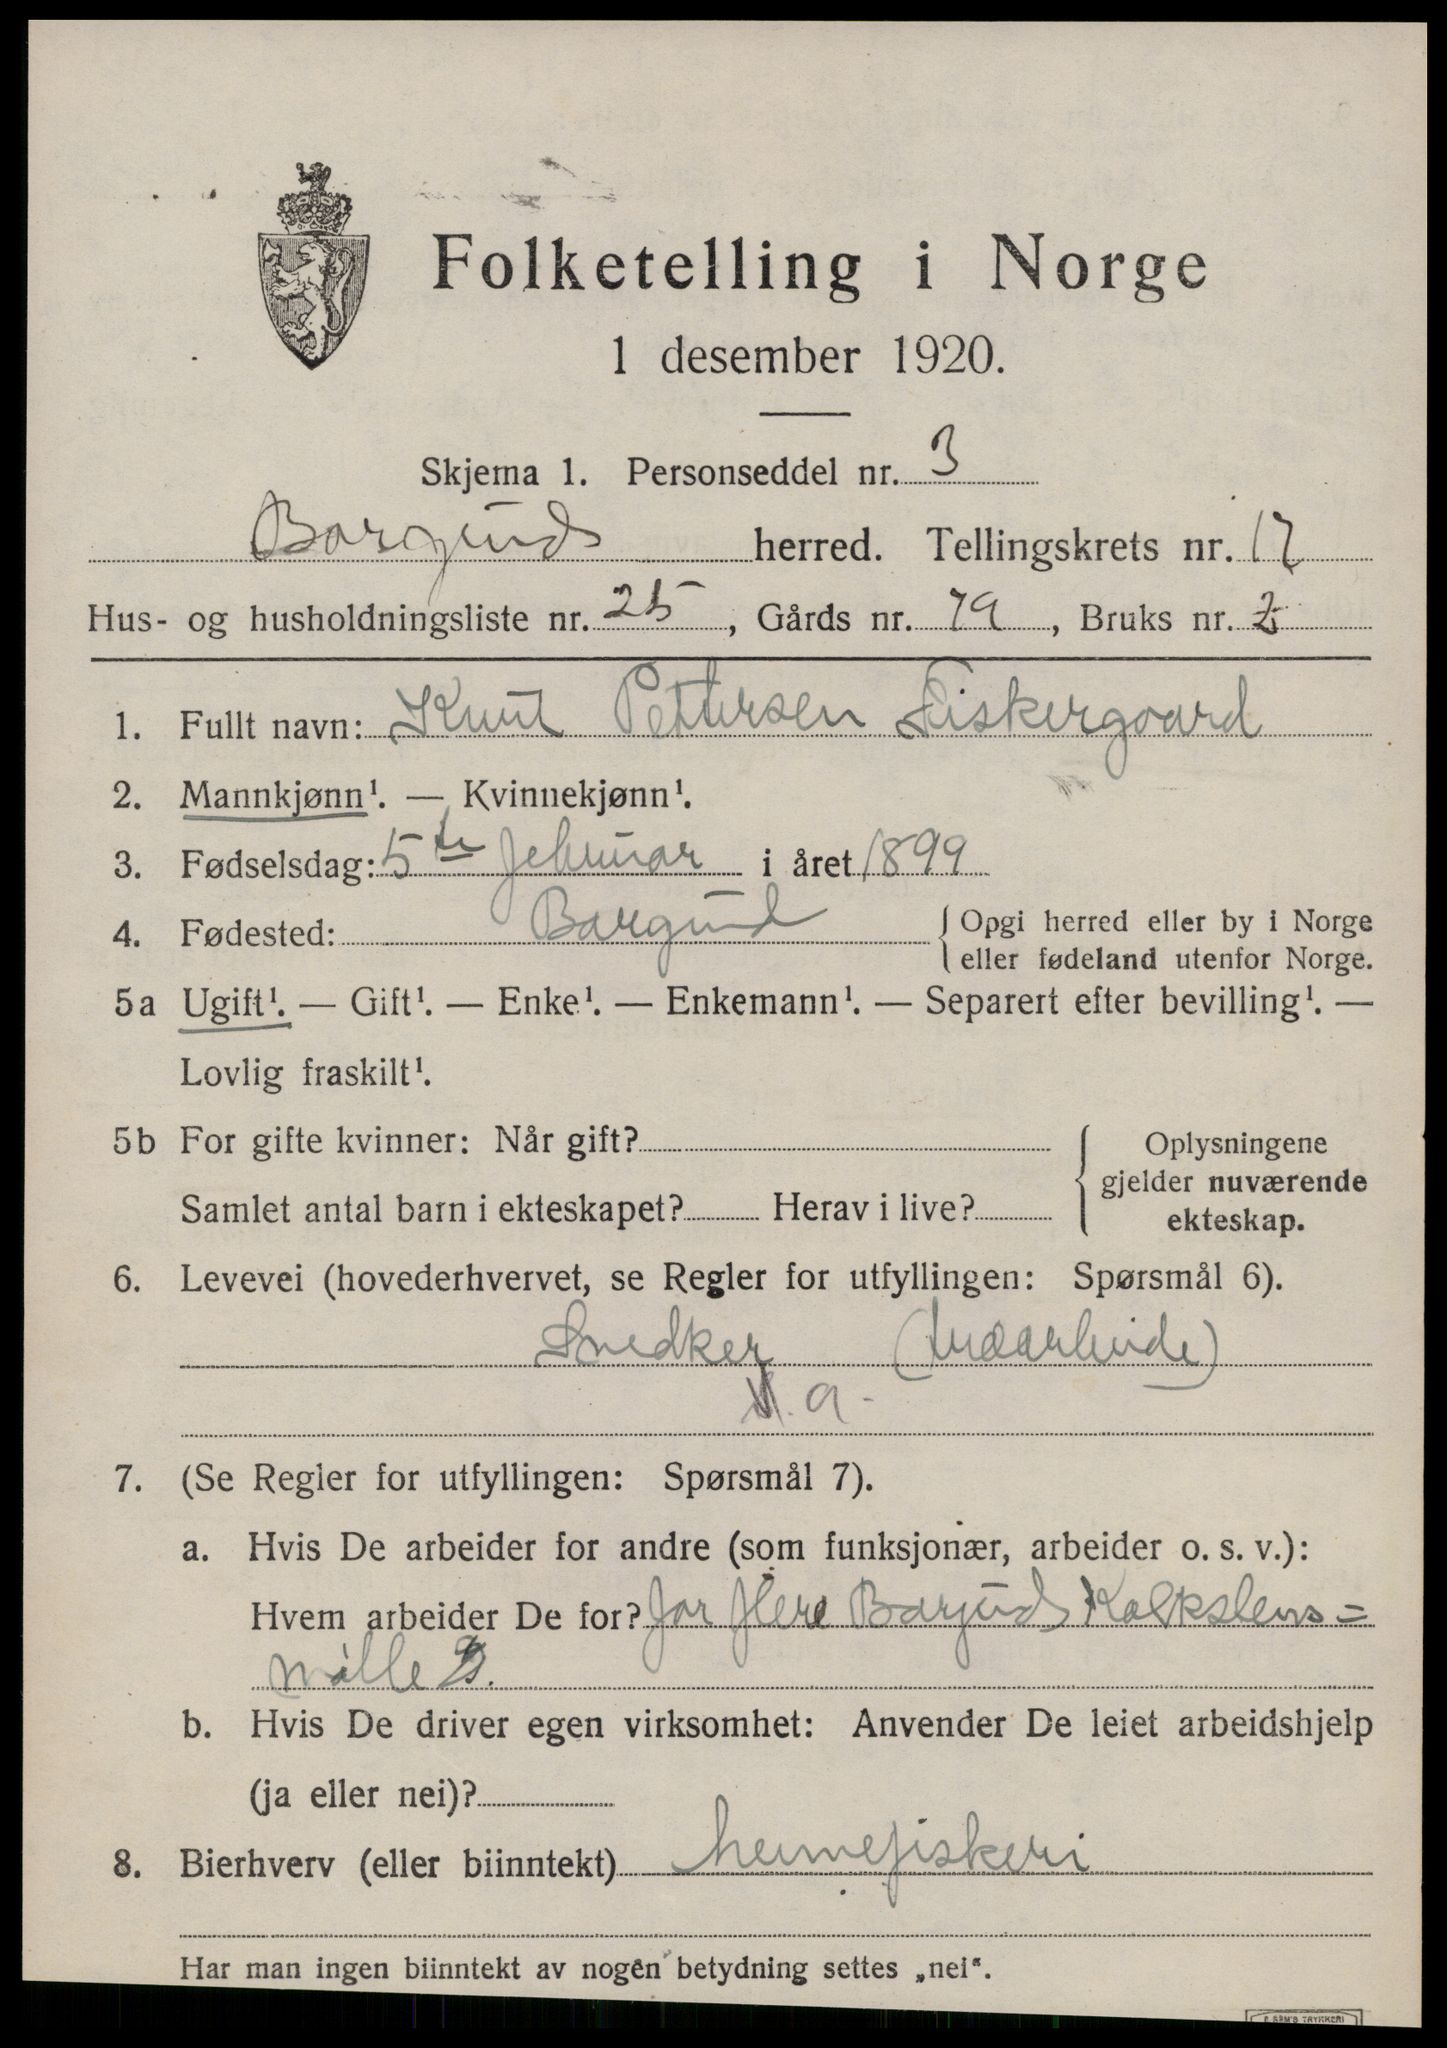 Folketelling i Norge
1 desember 1920.
Skjema 1. Personseddel nr. 3
Borgunds herred. Tellingskrets nr. 17
Hus- og husholdningsliste nr. 25, Gårds nr. 79, Bruks nr. 2
1. Fullt navn: Knut Pettersen Fiskergaard
2. Mannkjønn¹. — Kvinnekjønn¹.
3. Fødselsdag: 5te februar i året 1899
4. Fødested: Borgund { Opgi herred eller by i Norge
eller fødeland utenfor Norge.
5a Ugift¹. — Gift¹. — Enke¹. — Enkemann¹. — Separert efter bevilling¹. —
Lovlig fraskilt¹.
5b For gifte kvinner: Når gift? { Oplysningene
gjelder nuværende
Samlet antal barn i ekteskapet? Herav i live? ekteskap.
6. Levevei (hovederhvervet, se Regler for utfyllingen: Spørsmål 6).
Snedker
a.
7. (Se Regler for utfyllingen: Spørsmål 7).
a. Hvis De arbeider for andre (som funksjonær, arbeider o. s. v.):
Hvem arbeider De for? for flere Borgunds Kalkstens=
mølle
b. Hvis De driver egen virksomhet: Anvender De leiet arbeidshjelp
(ja eller nei)?
8. Bierhverv (eller biinntekt) heimefiskeri
Har man ingen biinntekt av nogen betydning settes „nei“.